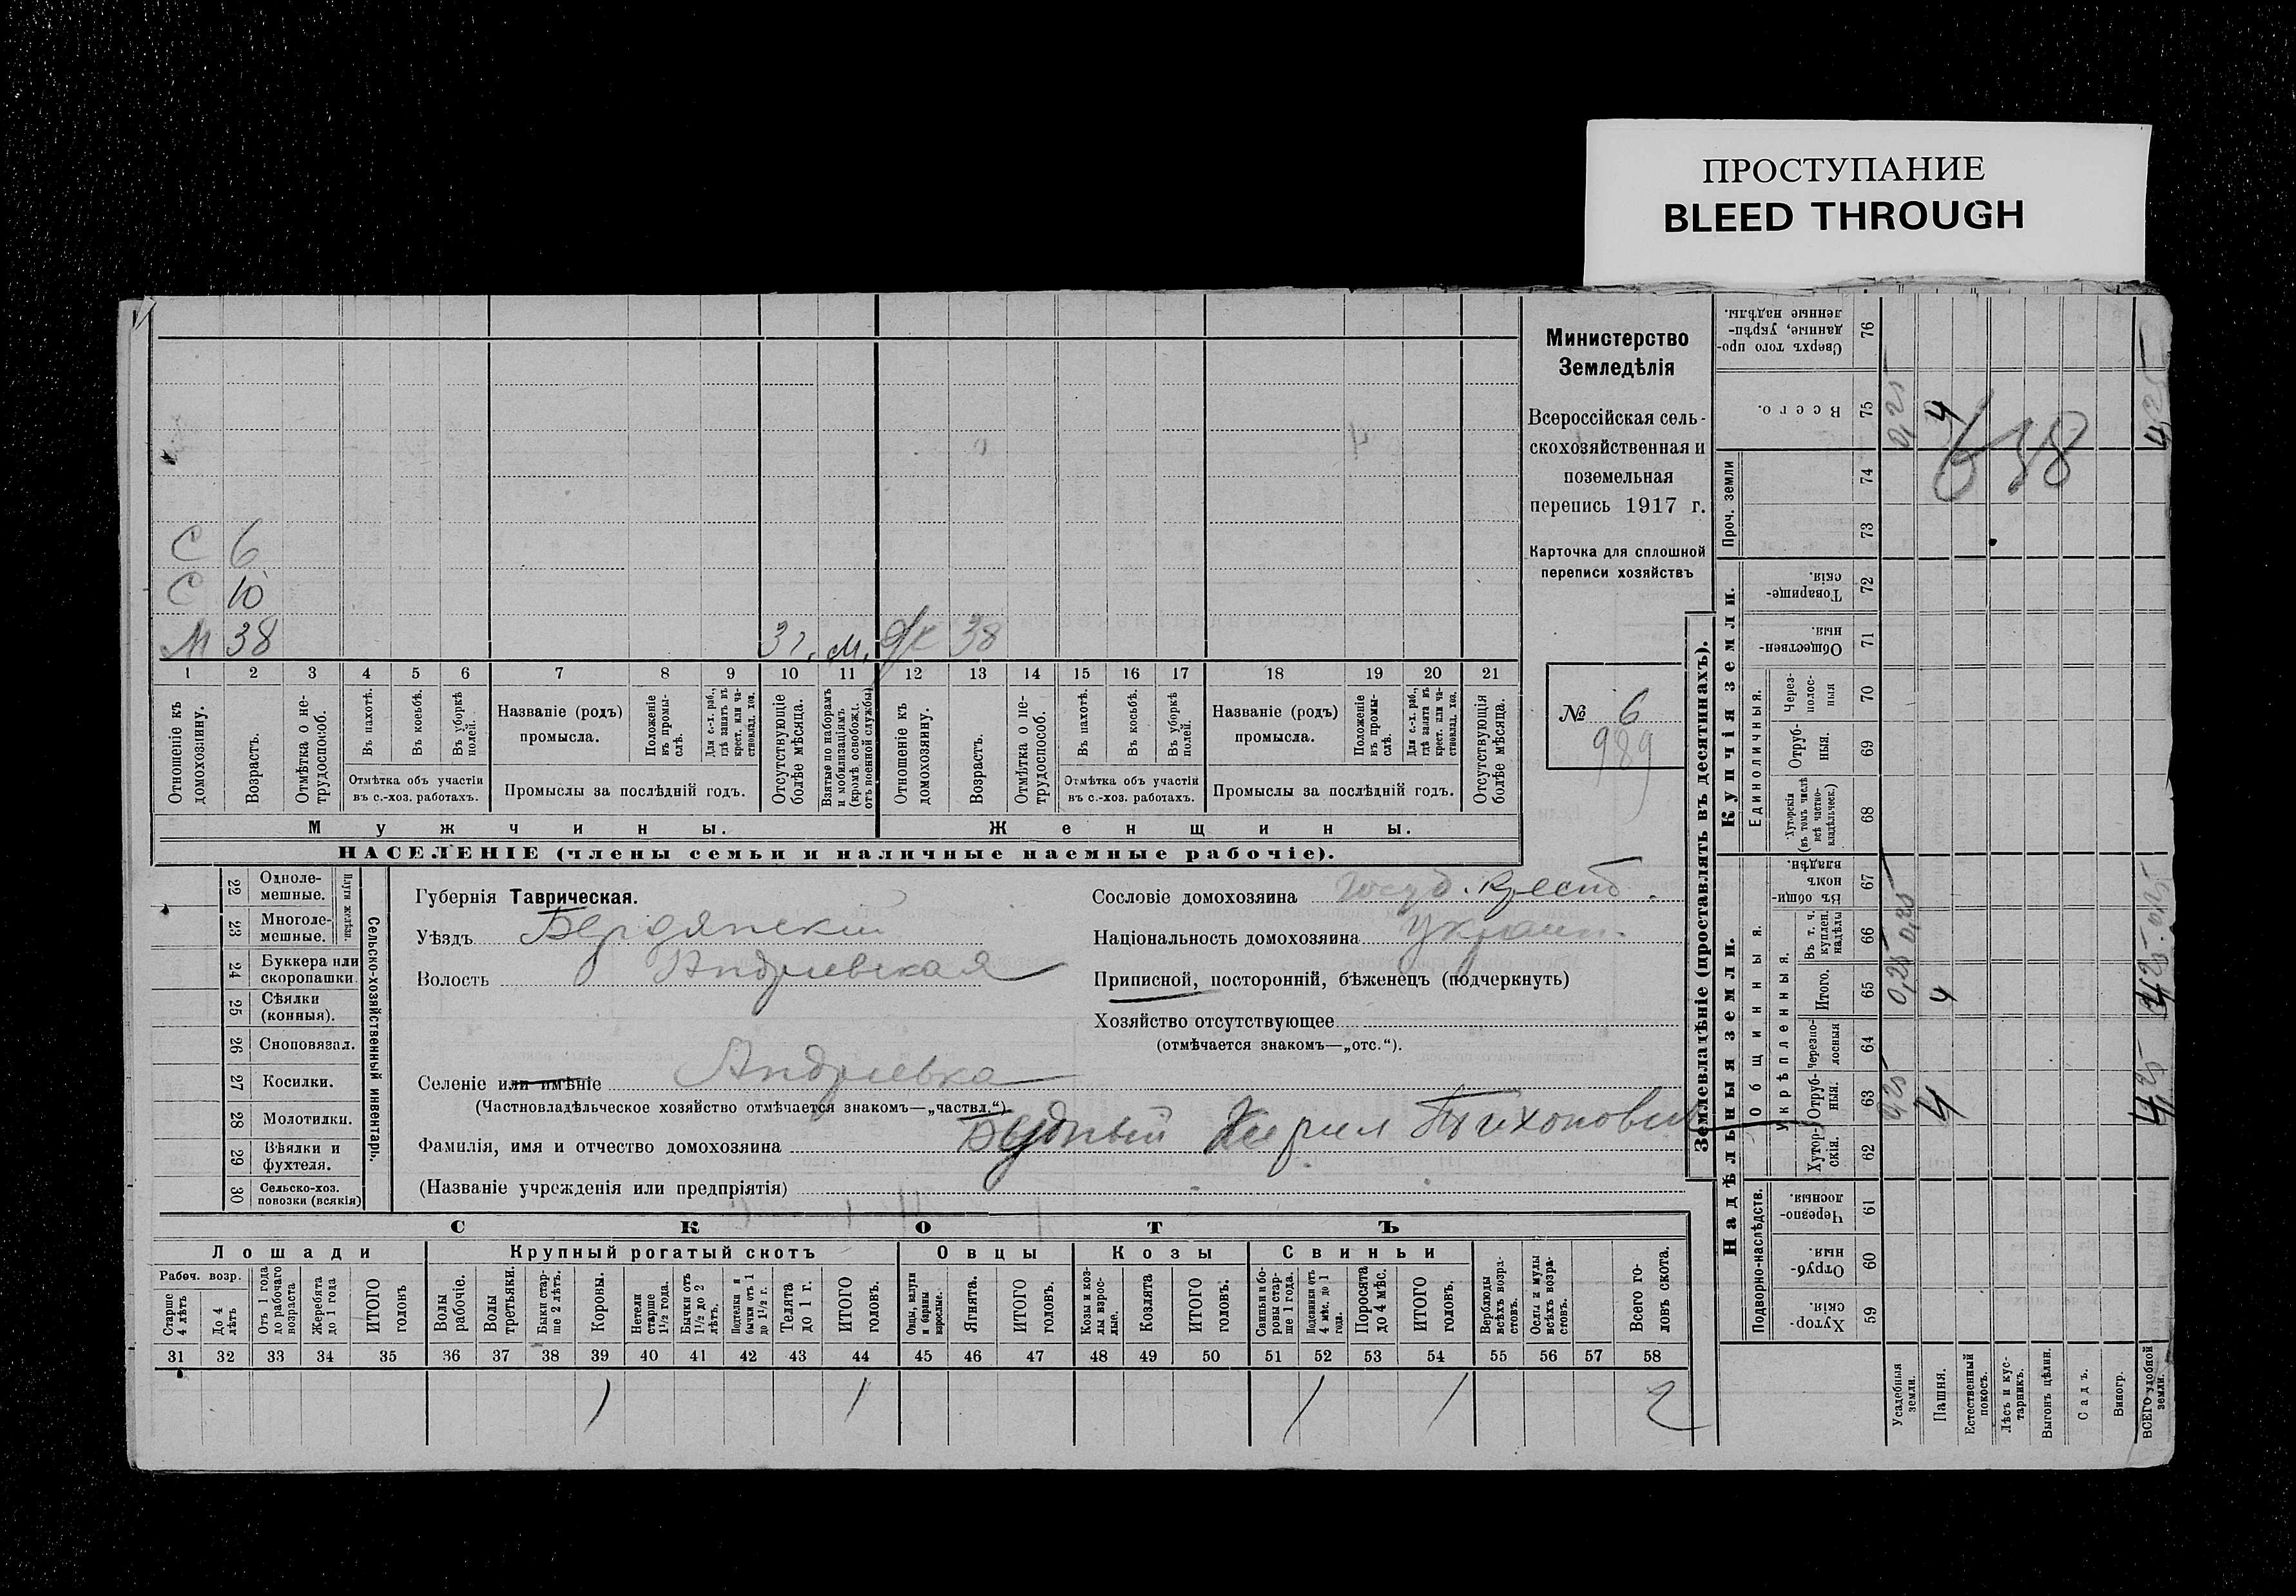 ПРОСТУПАНИЕ
BLEED THROUGH
С 6
С 10
М 38 3 г. м. ж 38
1 2 3 4 5 6 7 8 9 10 11 12 13 14 15 16 17 18 19 20 21
Отношеніе къ домохозяину.
Возрастъ.
Отмѣтка о нетрудоспособ.
Въ пахотѣ.
Въ косьбѣ.
Въ уборкѣ полей.
Отмѣтка объ участіи въ с.-хоз. работахъ.
Названіе (родъ) промысла.
Положеніе въ промыслѣ.
Для с.-х. раб., гдѣ занятъ въ крест. или частновлад. хоз.
Промыслы за послѣдній годъ.
Отсутствующіе болѣе мѣсяца.
Взятые по наборамъ и мобилизаціямъ (кромѣ освобожд. отъ военной службы)
Отношеніе къ домохозяину.
Возрастъ.
Отмѣтка о нетрудоспособ.
Въ пахотѣ.
Въ косьбѣ.
Въ уборкѣ полей.
Отмѣтка объ участіи въ с.-хоз. работахъ.
Названіе (родъ) промысла.
Положеніе въ промыслѣ.
Для с.-х. раб., гдѣ занята въ крест. или частновлад. хоз.
Промыслы за послѣдній годъ.
Отсутствующія болѣе мѣсяца.
Мужчины. Женщины.
НАСЕЛЕНІЕ (члены семьи и наличные наемные рабочіе).
Министерство
Земледѣлія
Всероссійская сель-
скохозяйственная и
поземельная
перепись 1917 г.
Карточка для сплошной
переписи хозяйствъ
№ 6
989
Сельско-хозяйственный инвентарь.
Плуги желѣзн.
22 Одноле-
мешные.
23 Многоле-
мешные.
24 Буккера или
скоропашки
25 Сѣялки
(конныя).
26 Сноповязал.
27 Косилки.
28 Молотилки.
29 Вѣялки и
фухтеля.
30 Сельско-хоз.
повозки (всякія)
Губернія Таврическая.
Уѣздъ Бердянскій
Волость Андріевская
Селеніе или имѣніе Андріевка
(Частновладѣльческое хозяйство отмѣчается знакомъ—„частвл.“)
Фамилія, имя и отчество домохозяина Будный Кирил Тихонович
(Названіе учрежденія или предпріятія)
Сословіе домохозяина Госуд. крест.
Національность домохозяина Украин.
Приписной, посторонній, бѣженецъ (подчеркнуть)
Хозяйство отсутствующее
(отмѣчается знакомъ—„отс.“).
СКОТЪ
Лошади Крупный рогатый скотъ Овцы Козы Свиньи
Рабоч. возр.
Старше 4 лѣтъ
До 4 лѣтъ
Отъ 1 года до рабочаго возраста
Жеребята до 1 года
ИТОГО головъ
Волы рабочіе.
Волы третьяки.
Быки старше 2 лѣтъ.
Коровы.
Нетели старше 1½ года.
Бычки отъ 1½ до 2 лѣтъ.
Подтелки и бычки отъ 1 до 1½ г.
Телята до 1 г.
ИТОГО головъ.
Овцы, валухи и бараны взрослые.
Ягнята.
ИТОГО головъ.
Козы и козлы взрослые.
Козлята
ИТОГО головъ.
Свиньи и боровы старше 1 года.
Подсвинки отъ 4 мѣс. до 1 года.
Поросята до 4 мѣс.
ИТОГО головъ.
Верблюды всѣхъ возрастовъ.
Ослы и мулы всѣхъ возрастовъ.
Всего головъ скота.
31 32 33 34 35 36 37 38 39 40 41 42 43 44 45 46 47 48 49 50 51 52 53 54 55 56 57 58
1 1 1 1 2
Землевладѣніе (проставлять въ десятинахъ).
Надѣльныя земли. Купчія земли.
Проч. земли
Подворно-наслѣдств.
Общинныя.
Укрѣпленныя.
Единоличныя.
59 Хуторскія.
60 Отрубныя.
61 Черезполосныя.
62 Хуторскія.
63 Отрубныя. 0,25 4 4,25
64 Черезполосныя
65 Итого. 0,25 4 4,25
66 Въ т. ч. куплен. надѣлы 0,25 0,25
67 Въ общинномъ владѣн.
68 Хуторскія (въ томъ числѣ всѣ частновладѣльческ.)
69 Отрубныя.
70 Черезполосныя
71 Общественныя.
72 Товарищескія.
73
74
75 Всего. 0,25 4 4,25
76 Сверхъ того проданные, укрѣпленные надѣлы.
638
Усадебныя земли.
Пашня.
Естественный покосъ.
Лѣсъ и кустарникъ.
Выгонъ цѣлин.
Садъ.
Виногр.
ВСЕГО удобной земли.